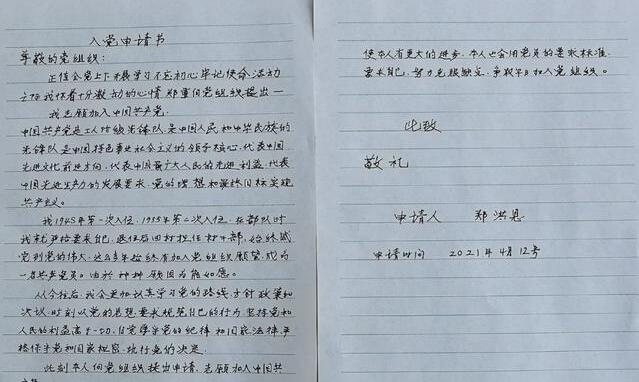 入党申请书
尊敬的党组织：
正值全党上下开展学习不忘初心牢记使命活动
之际我怀着十分激动的心情郑重向党组织提出一
我志愿加入中国共产党.
中国共产党是工人阶级先锋队是中国人民和中华民族的
先锋队是中国特色事业社会主义的领导核心,代表中国
先进文化前进方向,代表中国最广大人民的先进利益,代表
中国先进生产力的发展要求.党的理想和最终目标实现
共产主义。
我1948年第一次入伍,1955年第二次入伍.在部队时
我就严格要求自己.退伍后回村担任村干部,始终感
党到党的伟大.这么多年始终有加入党组织愿望,成为
一名共产党员。由於种种原因为能如愿。
从今往后,我会更加认真学习党的路线、方针政策和
决议,时刻以党的思想要求规范自己的行为坚持党和
人民的利益高于一切,自觉遵守党的纪律和国家法律严
格保守党和国家秘密,执行党的决定.
此刻本人向党组织提出申请,志愿加入中国共
使本人有更大的进步.本人也会用党员的要求标准
要求自己,努力克服缺点,争取早日加入党组织。
此致
敬礼
申请人 郑洪恩
申请时间 2021年4月12号